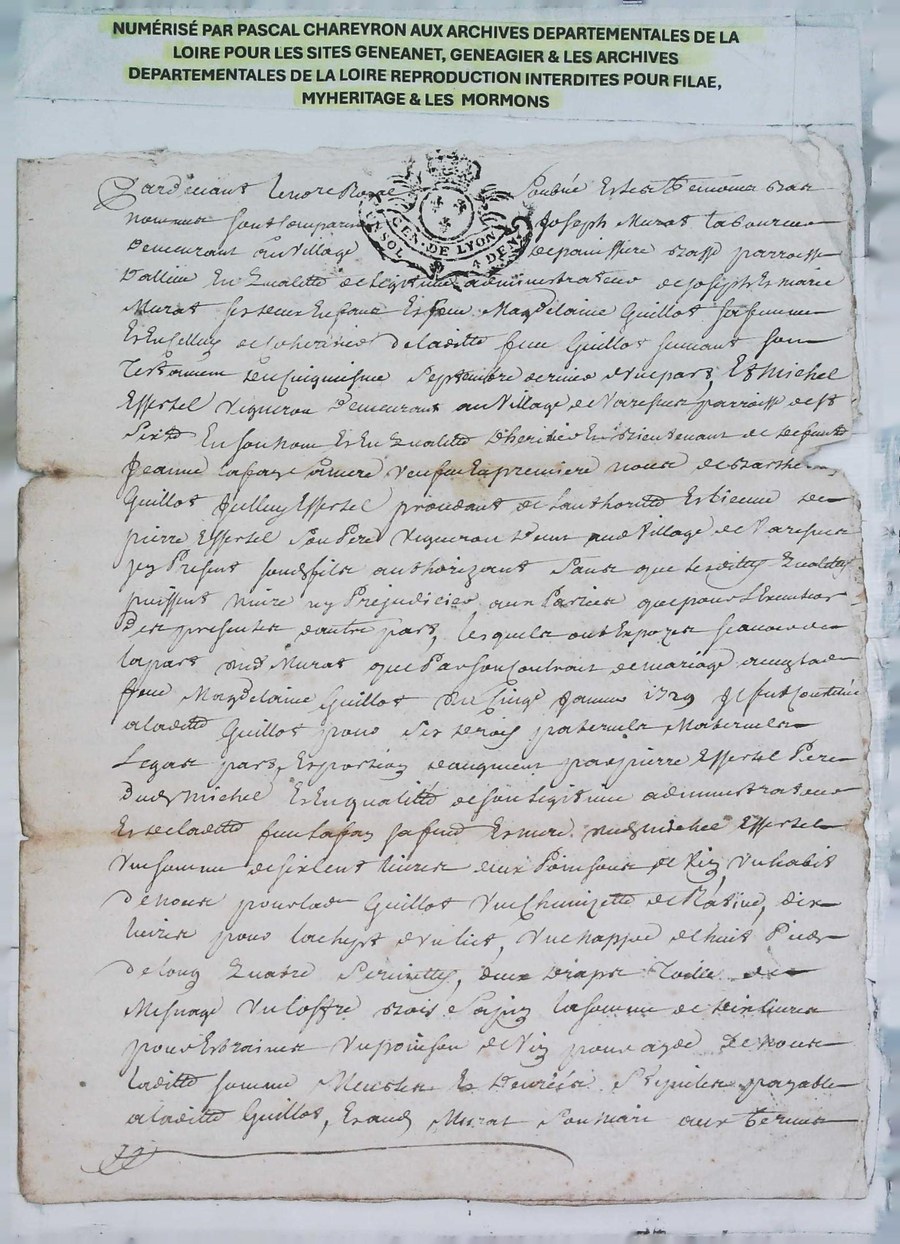 NUMÉRISÉ PAR PASCAL CHAREYRON AUX ARCHIVES DEPARTEMENTALES DE LA
LOIRE POUR LES SITES GENEANET, GENEAGIER & LES ARCHIVES
DEPARTEMENTALES DE LA LOIRE REPRODUCTION INTERDITES POUR FILAE,
MYHERITAGE & LES MORMONS
Pardevant le no.re Royal Soubné Et les Temoins bas
nommes sont comparu Joseph Murat laboureur
UN SOL GEN. DE LYON 4 DEN.
Demeurant au Village parroisse
En qualitté de légitime administrateur de Joseph Et marie
Murat ses deux Enfants Et feue Magdelaine Guillot sa femme
Et En celluy de laditte feue Guillot suivant son
Testament Septembre dernier d'une part, Et Michel
Effertel vigneron Demeurant au Village de parroisse de St
En son nom Et En qualitté D'heritier Et de defunte
Jeanne lafay sa mere veufue En premiere noces de
Guillot Effertel procedant de l'authoritté Et
pierre Effertel son Pere vigneron aud Village de
Present sond fils authorizant Sans que les qualittes
puissent nuire ny Prejudicier aux Parties que pour l'Execution
Des presentes d'autre part, lesquels ont Exposés scavoir de
la part dud Murat que Par son Contrait de mariage avec lad
feue Magdelaine Guillot du Cinq Janvier 1729 Il fut Constitué
a laditte Guillot pour Ses droits paternels Maternels
Legat part, Et portion d'augment par pierre Effertel Pere
Dud Michel Et En qualitté de son legitime administrateur
Et de laditte feue Lafay sa femme Et mere dud michel Effertel
Une somme de six Cent livres deux Poinsons de vin, Un habit
de noces pour lad Guillot Une Chemizette de Ratine, dix
livres pour l'achept d'un lict, Une nappe d'huit Pieds
de long quatre Serviettes, deux draps Toille de
Mesnage Un Coffre bois Sapin la somme de livres
pour Estraines Un poinson de vin pour De noces
laditte somme Meubles Et Denrées payable
a laditte Guillot, Et aud Murat Son mari aux Termes